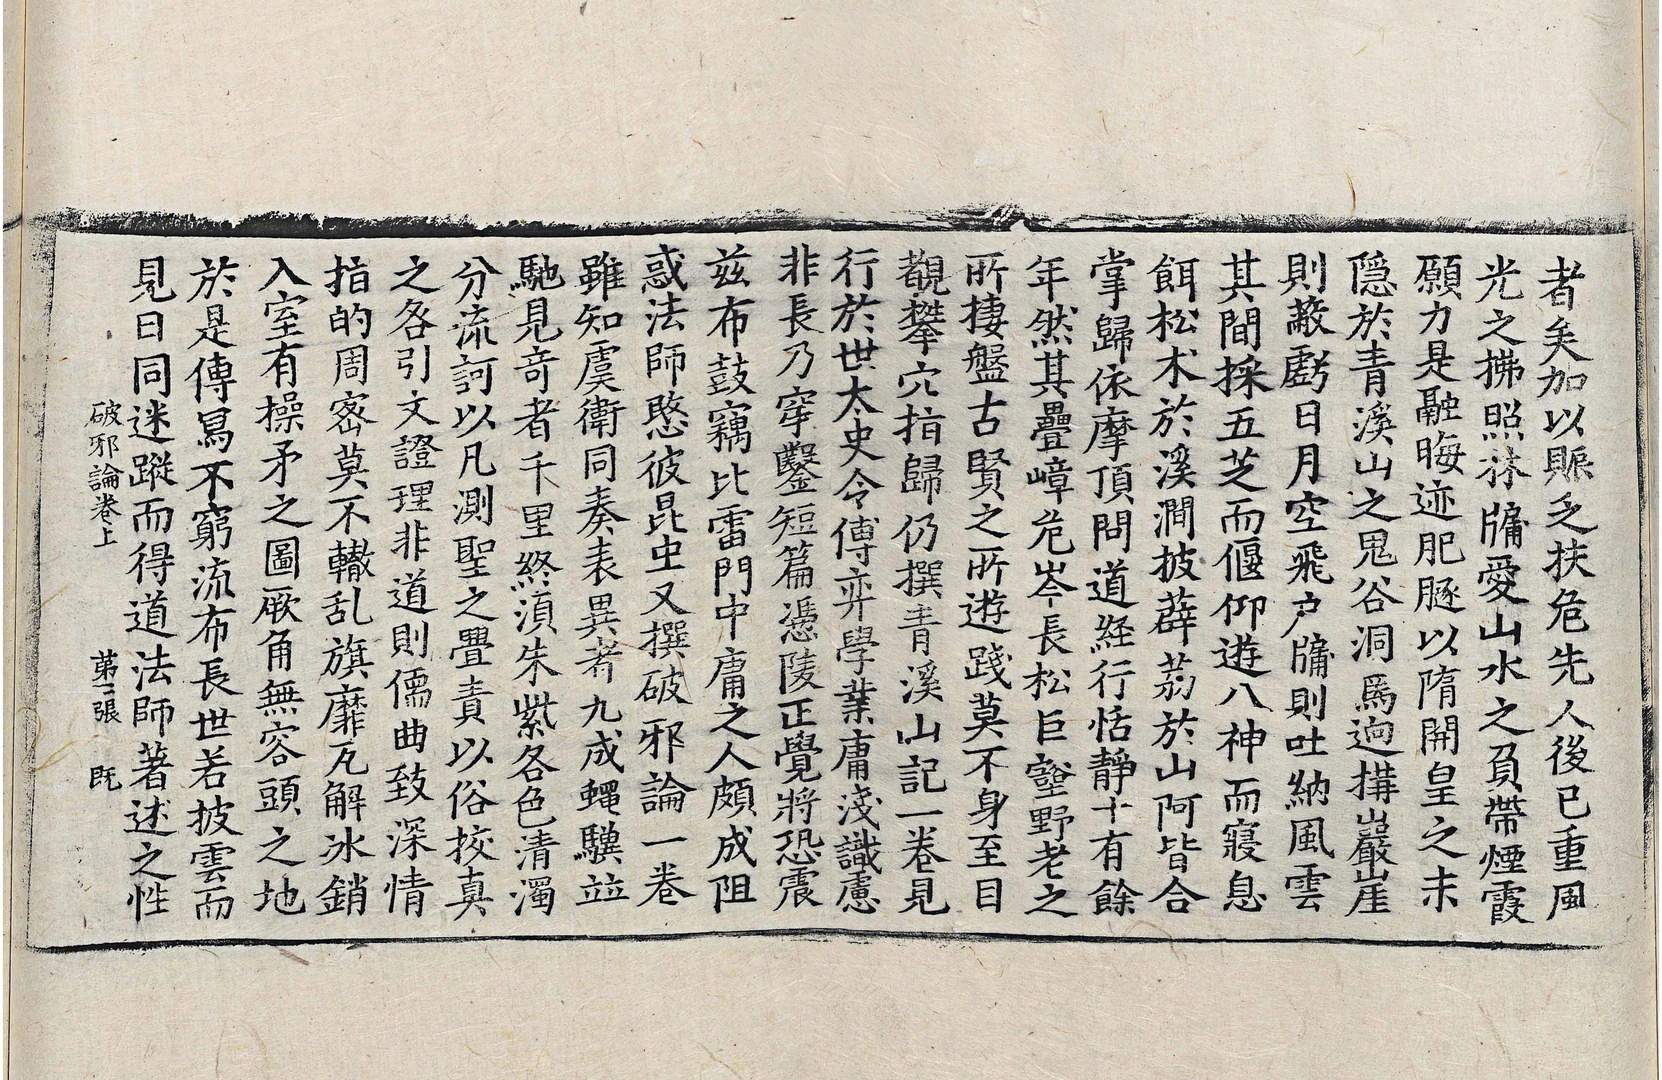 者矣加以賑乏扶危先人後已重風
光之拂照林牖愛山水之負帶煙霞
願力是融晦迹肥豚以隋開皇之末
隱於青溪山之鬼谷洞焉逈構巖崖
則蔽虧日月空飛戶牖則吐納風雲
其間採五芝而偃仰遊八神而寢息
餌松术於溪澗披薜荔於山阿皆合
掌歸依摩頂問道経行恬靜十有餘
年然其疊嶂危岑長松巨壑野老之
所棲盤古賢之所遊踐莫不身至目
覩攀穴指歸仍撰青溪山記一卷見
行於世太史令傅弈學業庸淺識慮
非長乃穿鑿短篇憑陵正覺將恐震
茲布鼓竊比雷門中庸之人頗成阻
惑法師愍彼昆虫又撰破邪論一卷
雖知虞衛同奏表異者九成蠅驥竝
馳見竒者千里終湏朱紫各色清濁
分流訶以凡測聖之舋責以俗挍真
之各引文證理非道則儒曲致深情
指的周宻莫不轍乱旗靡瓦解冰銷
入室有操矛之圖厥角無容頭之地
於是傳寫不窮流布長世若披雲而
見日同迷蹤而得道法師著述之性
破邪論卷上 苐二張 既